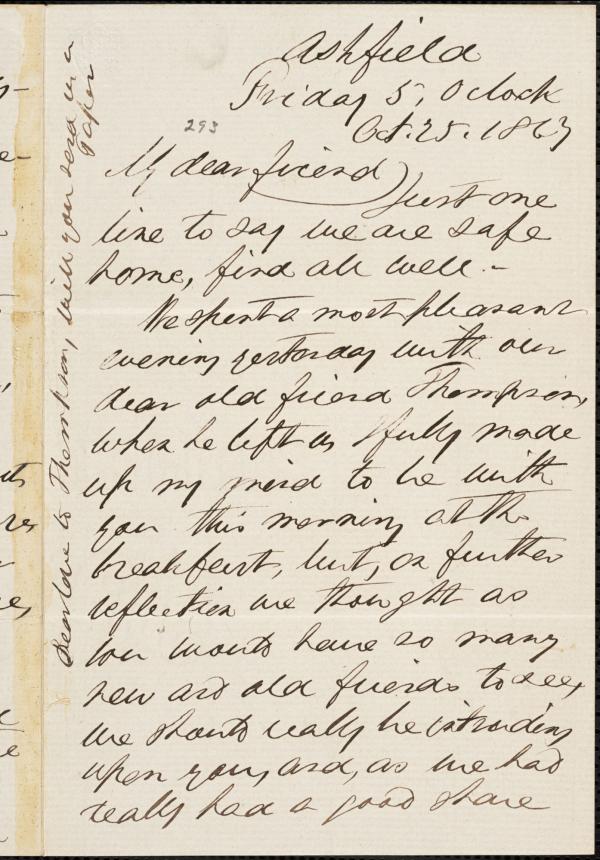 Ashfield
Friday 5, O clock
Oct. 25. 1867
293
My dear friend) Just one
line to say we are safe
home, find all well. -
We spent a most pleasant
evening yesterday with our
dear old friend Thompson,
when he left us I fully made
up my mind to be with
you this morning at the
breakfast, but, on further
reflection we thought as
you would have so many
new and old friends to see,
we should really be intruding
upon you, and, as we had
really had a good share
Dear love to Thompson, will you send us a
Paper